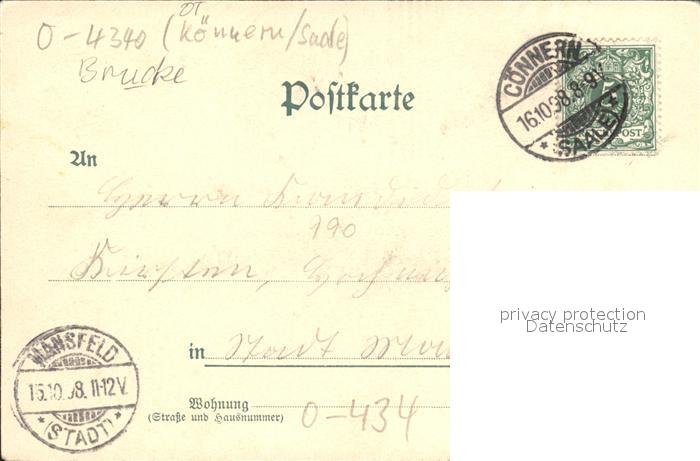 OT
O-4340 (Könnern/Saale)
Brucke
CÖNNERN
16.10.98. 8-9V.
* (SAALE) *
POST
Postkarte
An
Herrn
190
in Stadt
MANSFELD
15.10.98. 11-12V.
* (STADT) *
Wohnung
(Straße und Hausnummer)
O-434
privacy protection
Datenschutz